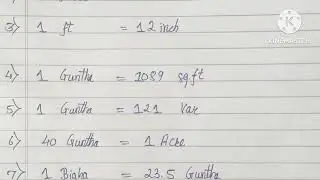 3) 1 ft = 12 inch
KINEMASTER
4) 1 Guntha = 1089 sq.ft
5) 1 Guntha = 121 Var
6) 40 Guntha = 1 Acre
7) 1 Bigha = 23.5 Guntha